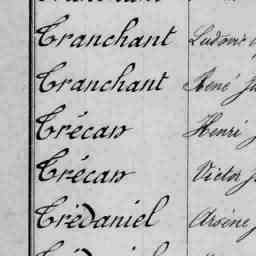 Tranchant Ludovic
Tranchant René
Trécan Henri
Trécan Victor
Trédaniel Arsène